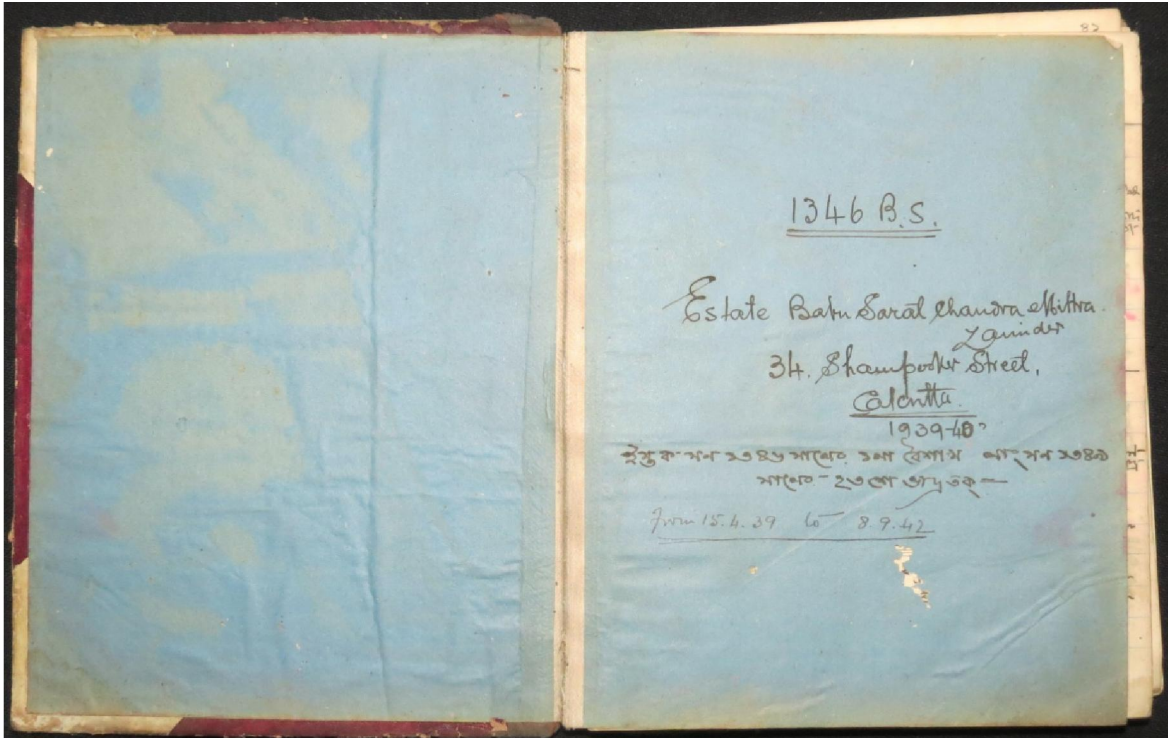 82
1346 B.S.
Estate Babu Sarat Chandra Mittra.
Zamindar
34. Shampooker Street,
Calcutta.
1939-40
ইস্তক সন ১৩৪৬ সালের ১লা বৈশাখ লাং সন ১৩৪৯
সালের ২৩শে ভাদ্র তক্
From 15.4.39 to 8.9.42